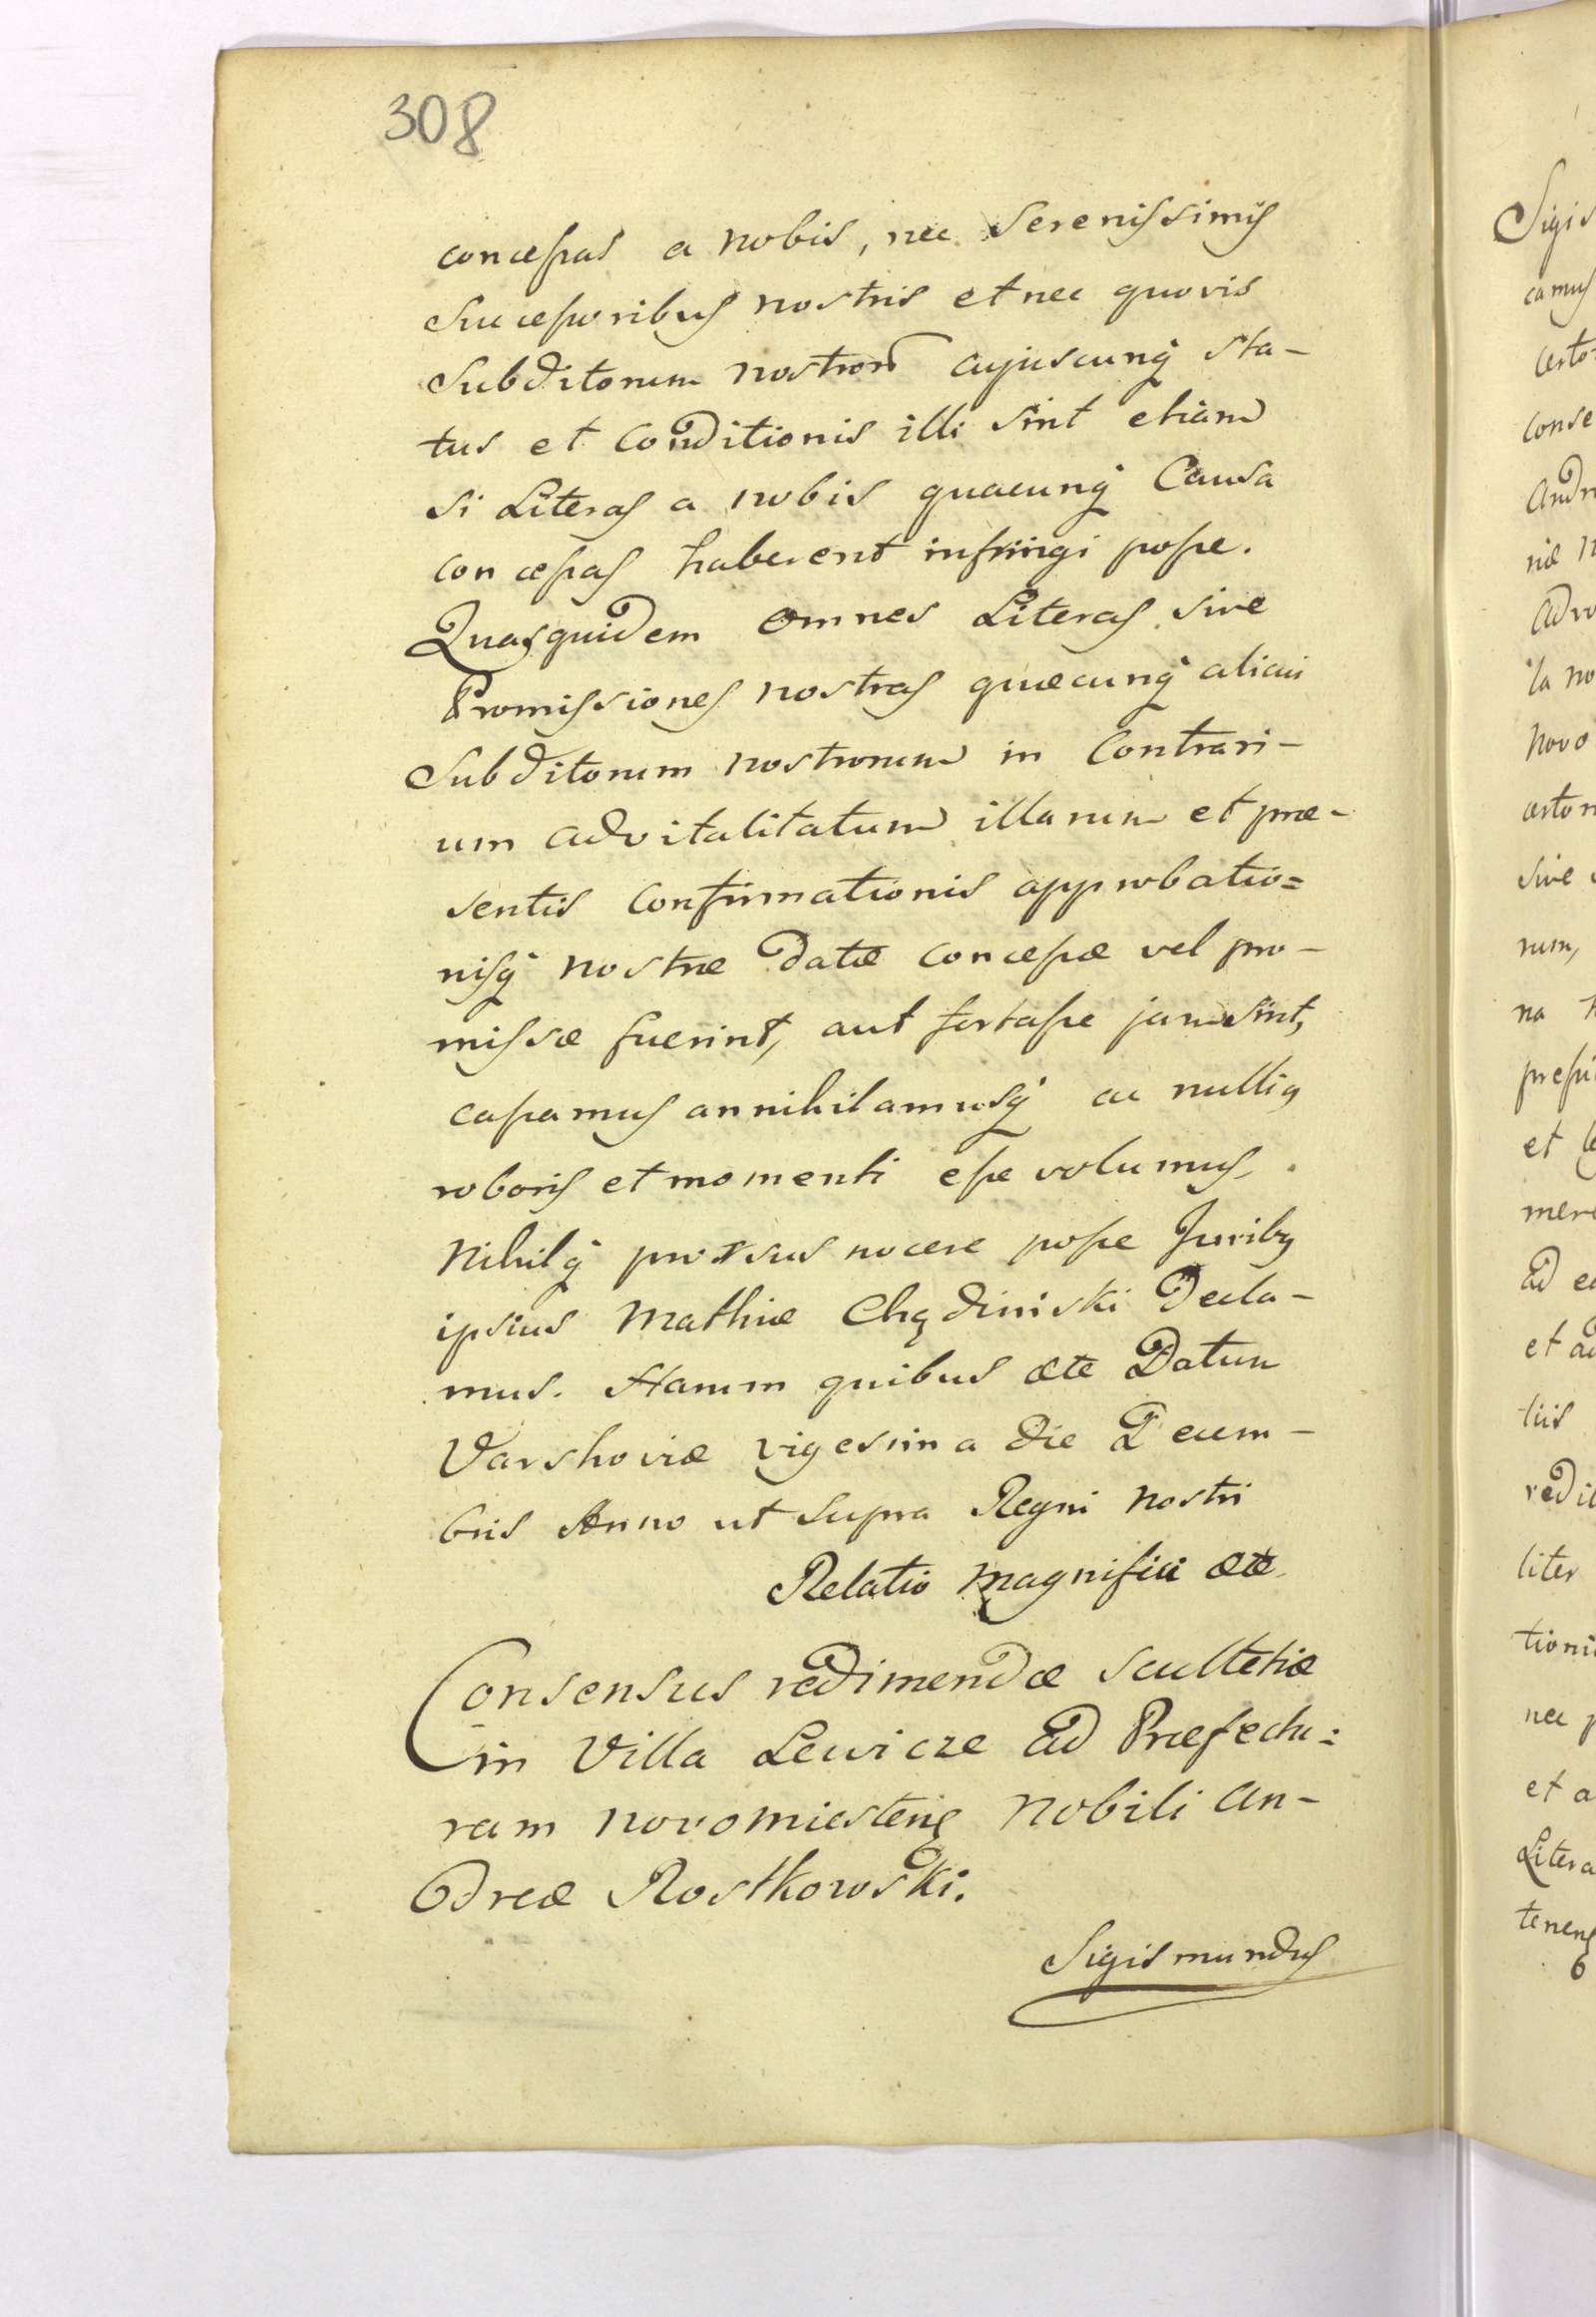 308
concessas a nobis, nec Serenissimis
Successoribus nostris et nec quovis
Subditorum nostror̃ cujuscunq́ sta-
tus et Conditionis illi sint etiam
si Literas a nobis quacunq́ Causa
concessas haberent infringi posse.
Quasquidem omnes Literas sive
Promissiones nostras quæcunq́ alicui
Subditorum nostrorum in Contrari-
um advitalitatum illarum et præ-
sentis Confirmationis approbatio=
nisq́ nostræ datæ concessæ vel pro-
missæ fuerint, aut fortasse jam sint,
cassamus annihilamusq́ ac nullius
roboris et momenti esse volumus.
Nihilq́ prorsus nocere posse Juribus
ipsius Mathiæ Chądzinski Decla-
mus. Harum quibus ætc Datum
Varshoviæ vigesima die Decem-
bris Anno ut supra Regni nostri
Relatio Magnifici ætc
Consensus redimendæ Scultetiæ
in Villa Lewicze ad Præfectu=
ram novomiesteng nobili An-
dreæ Rostkowski.
Sigismundus
Sigis
camus
certo-
conse
Andr
niæ n
Adv
la no
novo
certor
sive
rum,
na
pressi
et
mere
ad e
et ad
tiis
redi
liter
tioni
nec p
et a
Litera
teneng